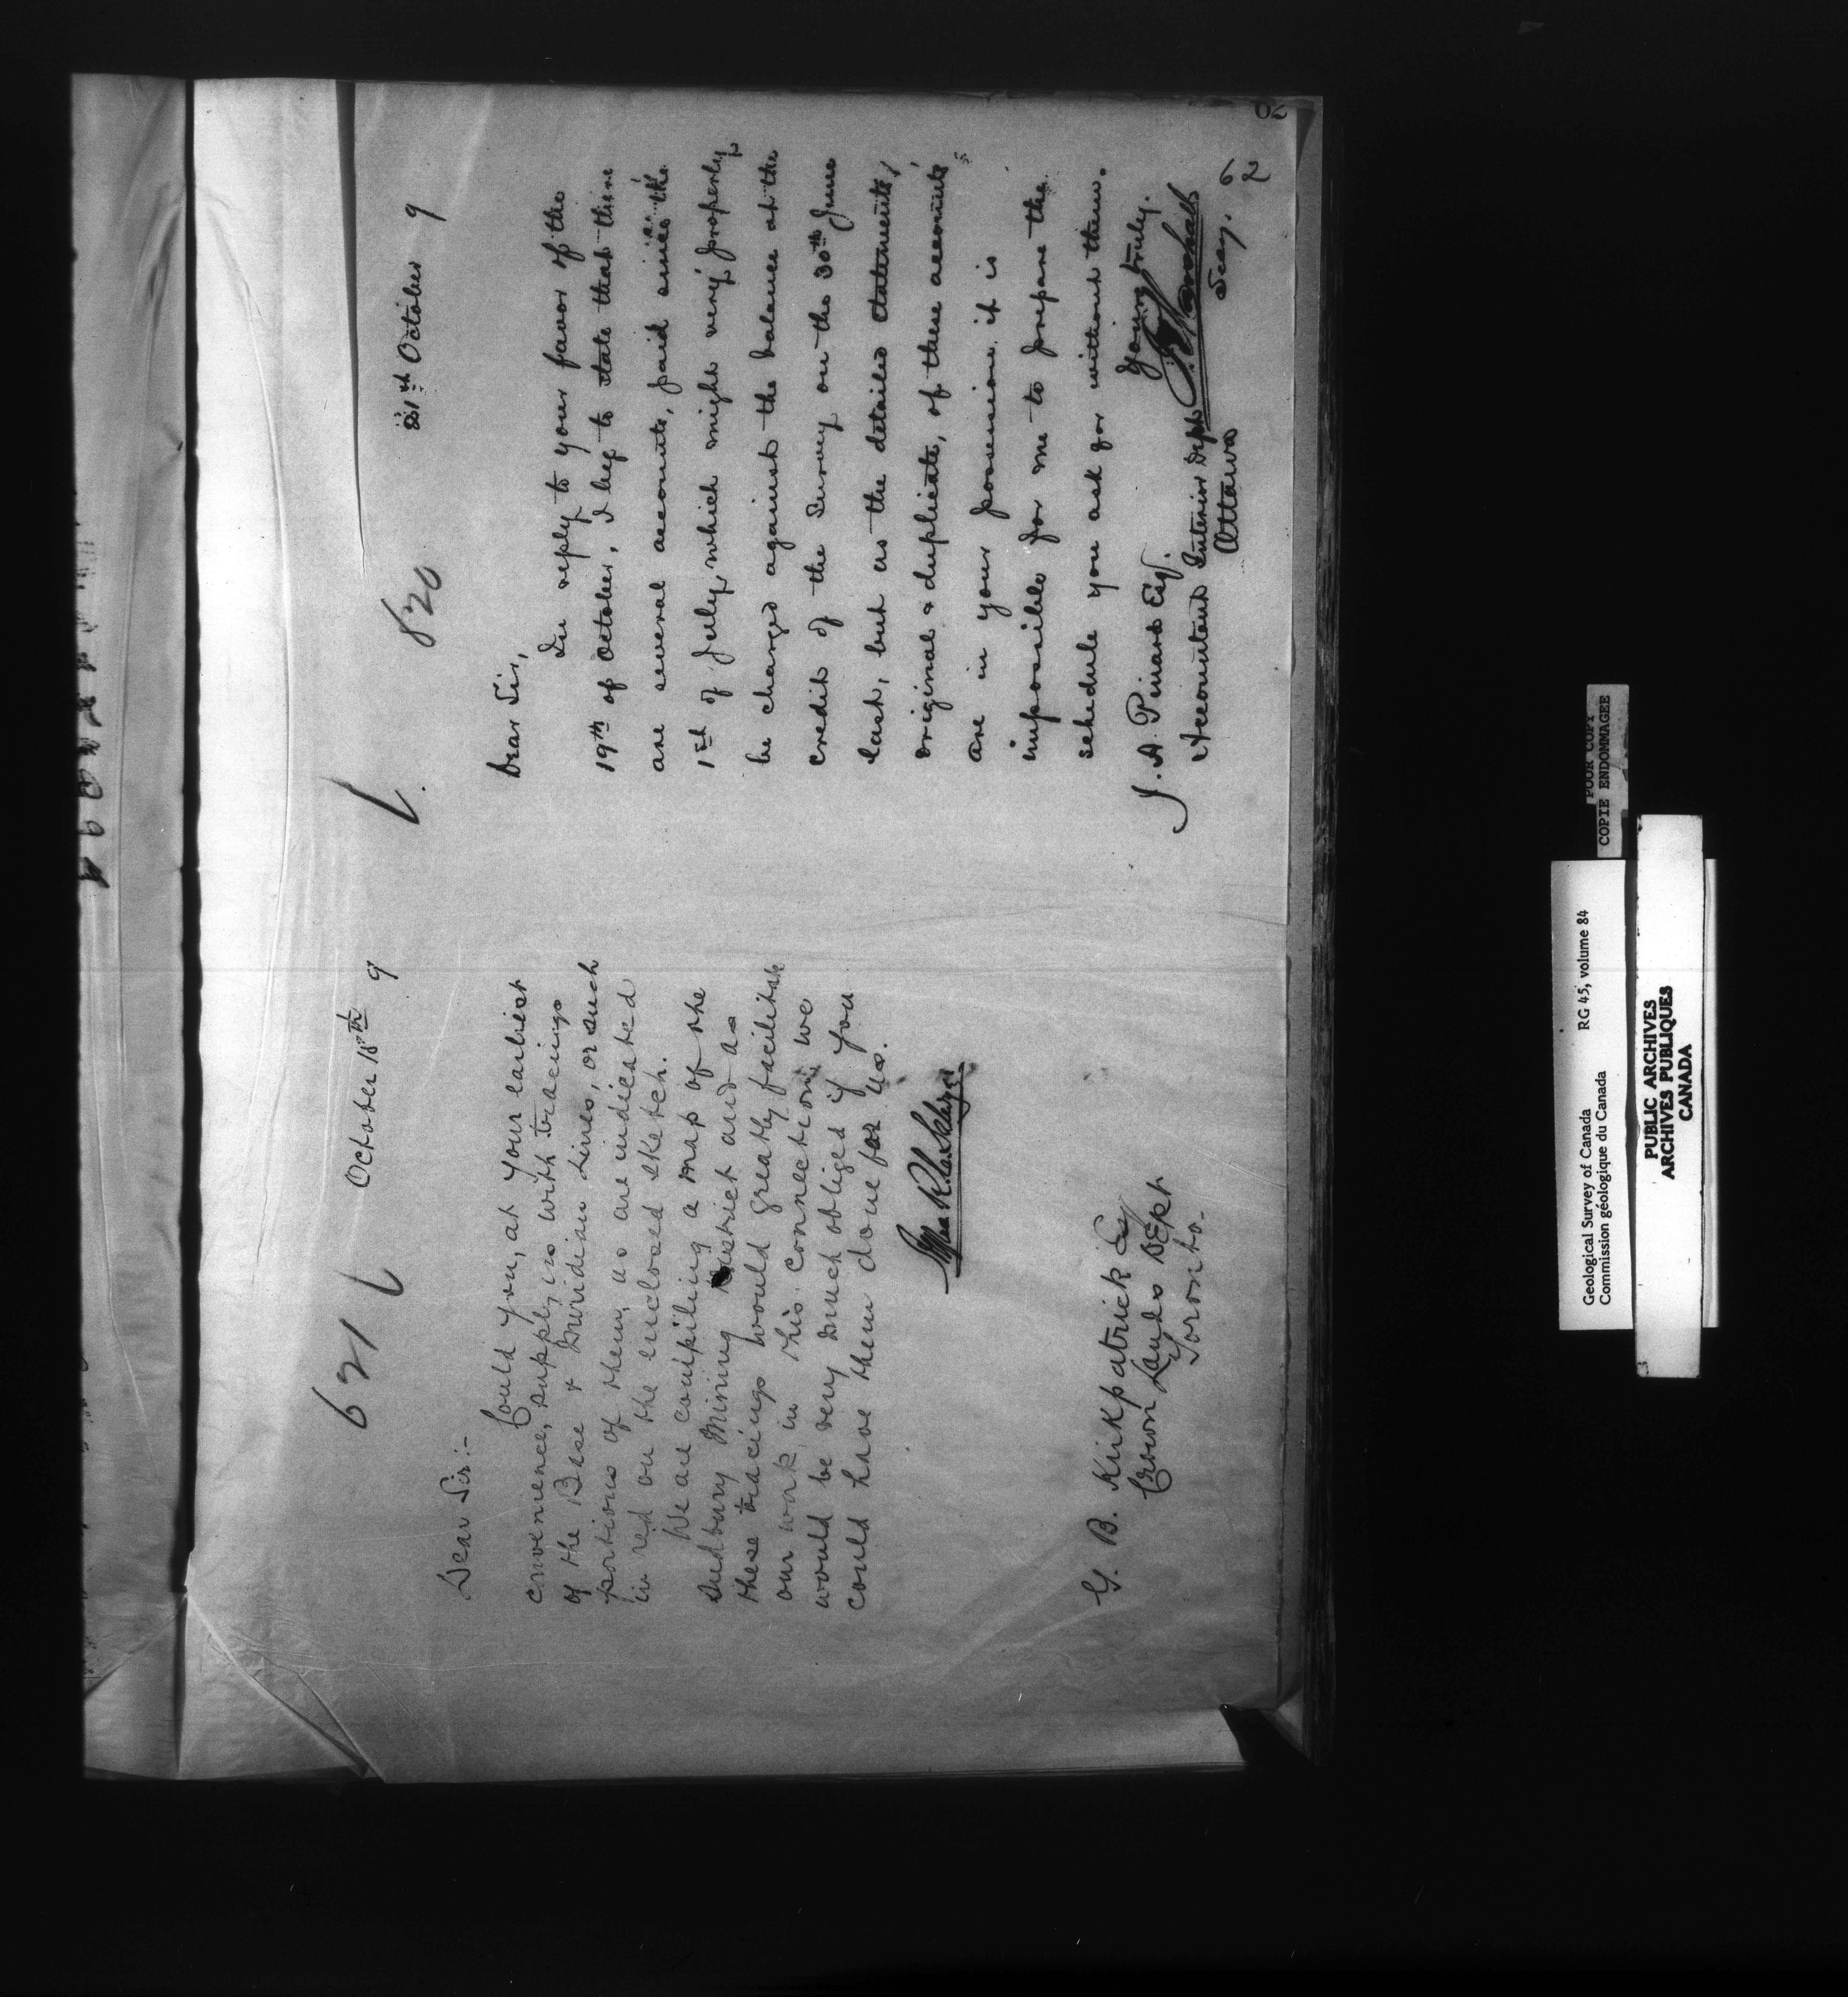 621
October 18th 9
Dear Sir:-
Could you, at your earliest
convenience, supply us with tracings
of the Base & Meridian Lines, or such
portions of them, as are indicated
in red on the enclosed sketch.
We are compiling a map of the
Sudbury Mining District and as
these tracings would greatly facilitate
our work in this connection we
would be very much obliged if you
could have them done for us.
G. B. Kirkpatrick Esq
Crown Lands Dept
Toronto.
820
21st October 9
Dear Sir,
In reply to your favor of the
19th of October, I beg to state that there
are several accounts, paid since the
1st of July, which might very properly
be charged against the balance at the
credit of the Survey on the 30th June
last, but as the detailed statements,
original & duplicate, of these accounts
are in your possession it is
impossible for me to prepare the
schedule you ask for without them.
Yours truly.
J. Marshall
Secy.
J. A. Pinard Esq.
Accountant Interior Dept
Ottawa
62
62
POOR COPY
COPIE ENDOMMAGEE
Geological Survey of Canada RG 45, volume 84
Commission géologique du Canada
PUBLIC ARCHIVES
ARCHIVES PUBLIQUES
CANADA
3